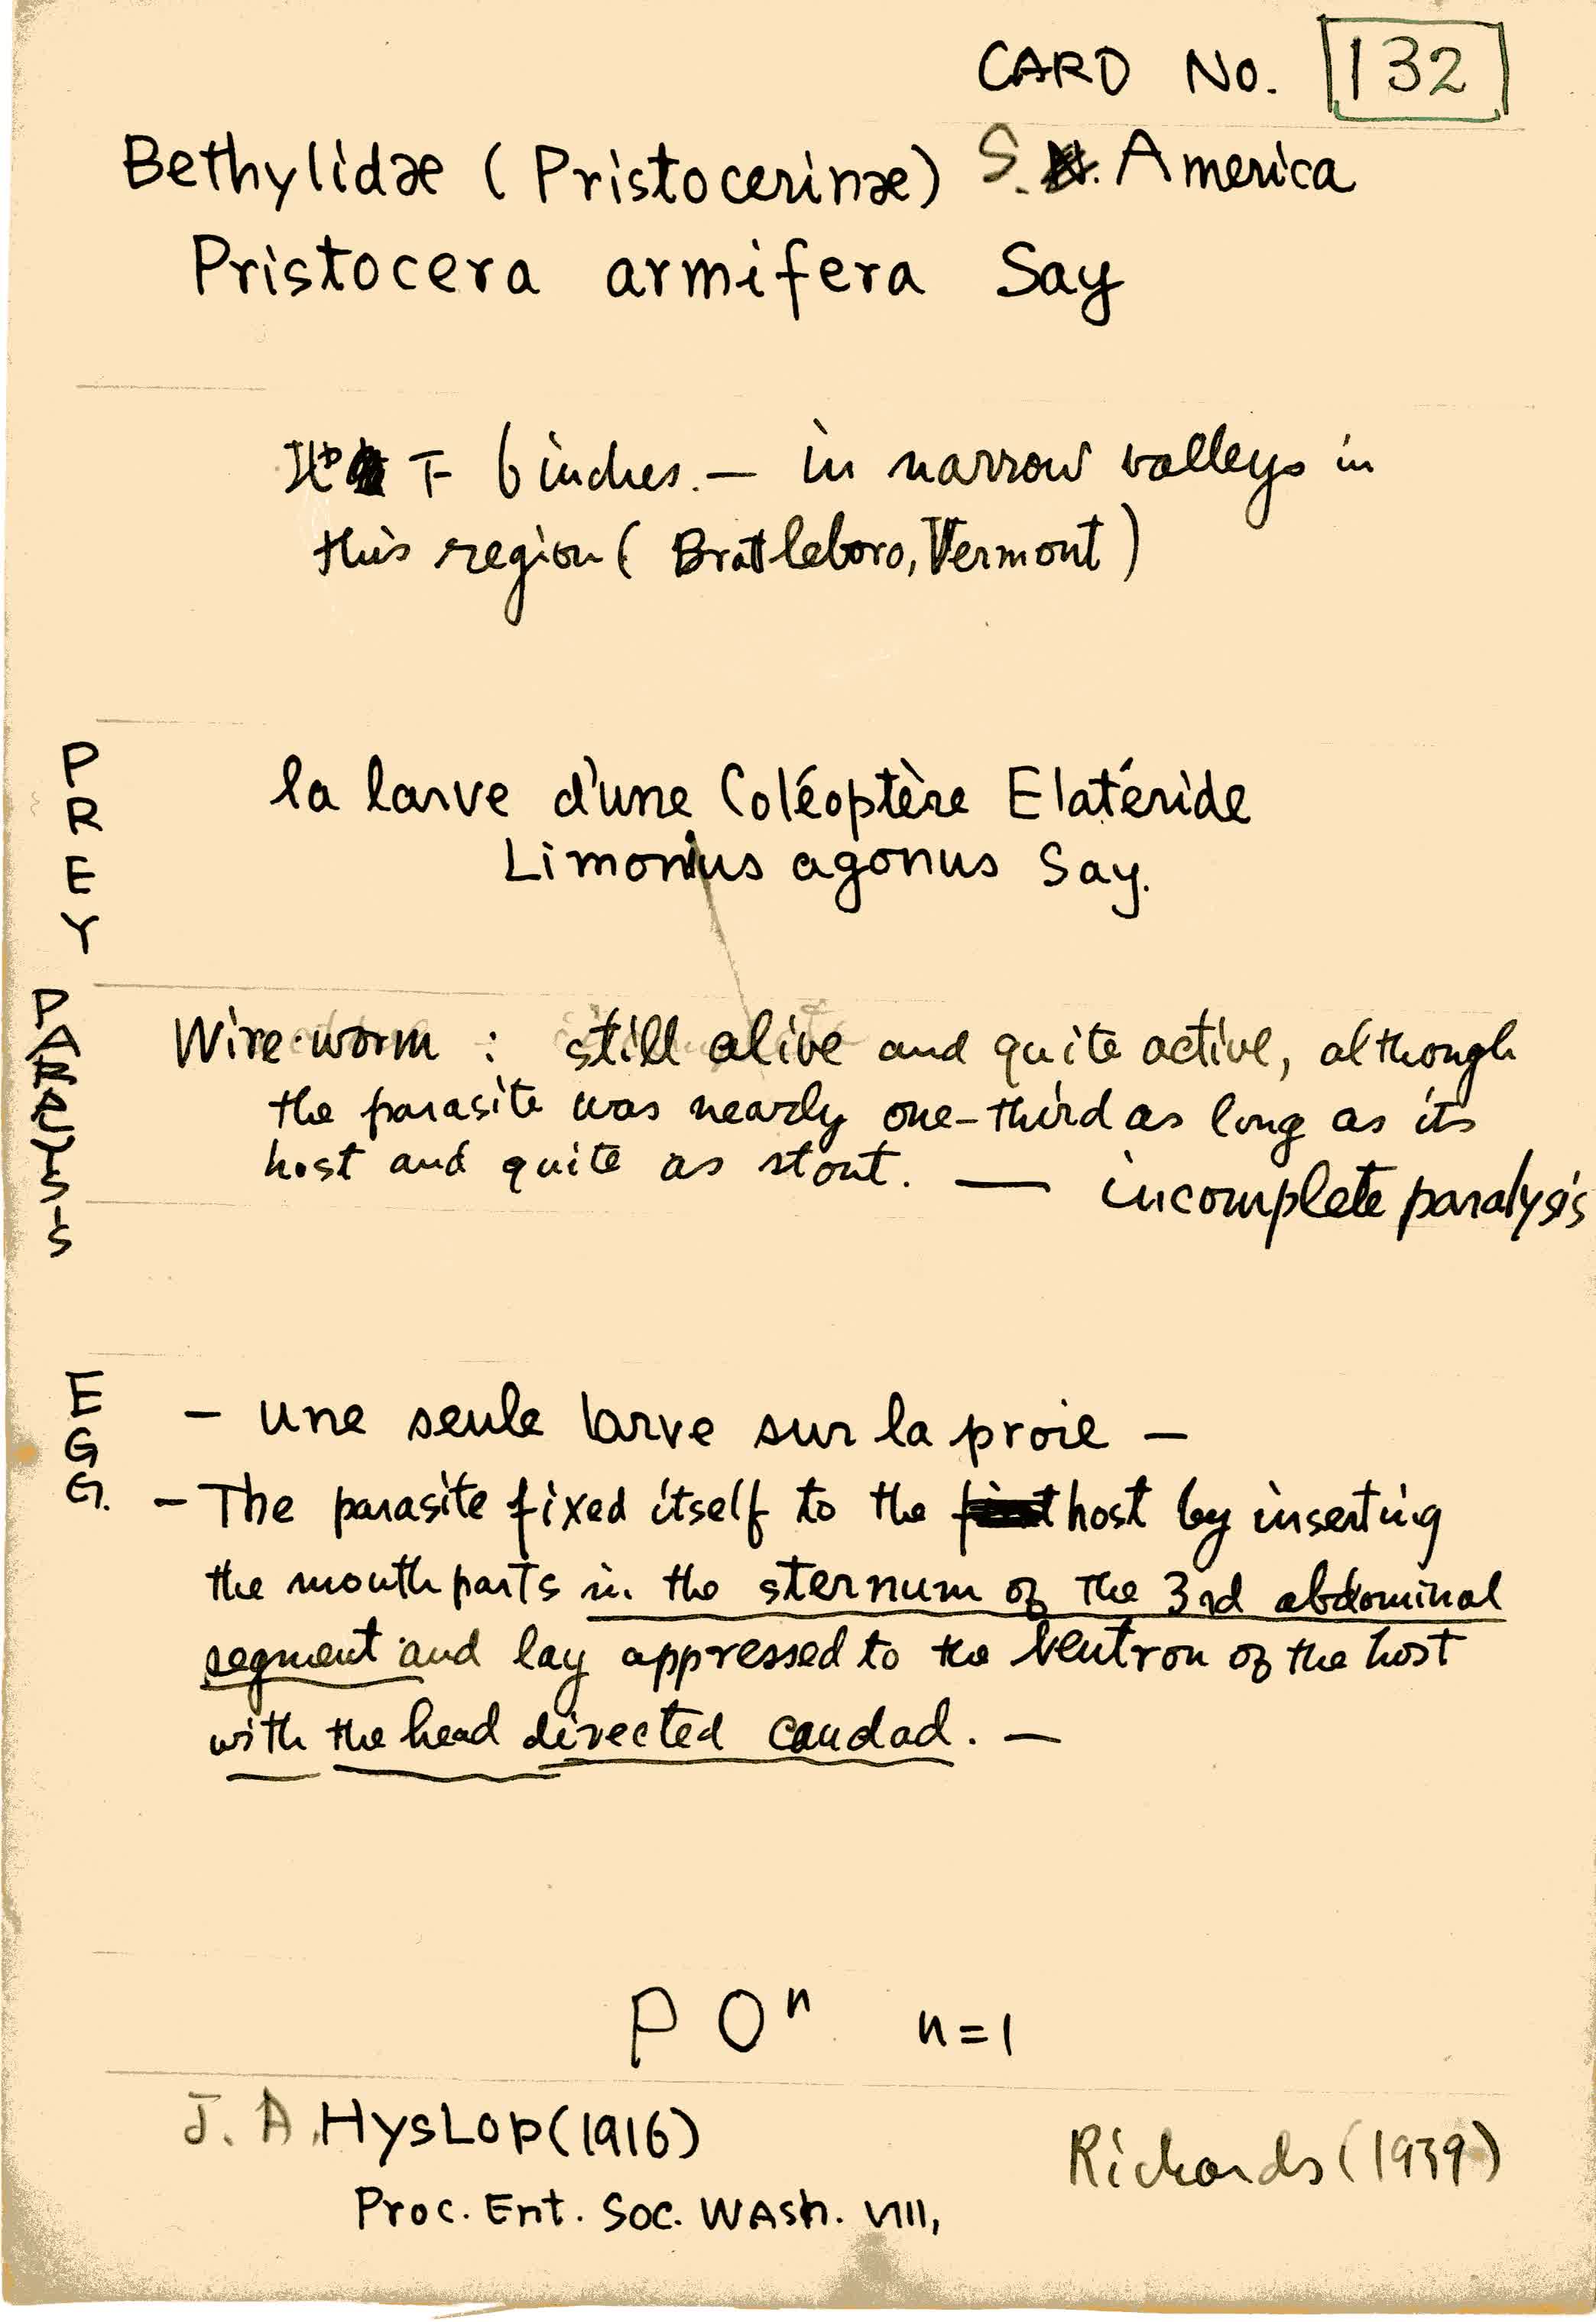 CARD No. 132
Bethylidæ (Pristocerinæ) S. America
Pristocera armifera Say
地下 6 inches. — in narrow valleys in
this region ( Brattleboro, Vermont )
PREY
la larve d'une Coléoptère Elatéride
Limonius agonus Say.
PARALYSIS
Wire-worm : still alive and quite active, although
the parasite was nearly one-third as long as its
host and quite as stout. — incomplete paralysis
EGG.
— une seule larve sur la proie —
— The parasite fixed itself to the host by inserting
the mouth parts in the sternum of the 3rd abdominal
segment and lay appressed to the ventron of the host
with the head directed caudad. —
P Oⁿ n=1
J. A. HysLop (1916)
Richards (1939)
Proc. Ent. Soc. WAsh. VIII,